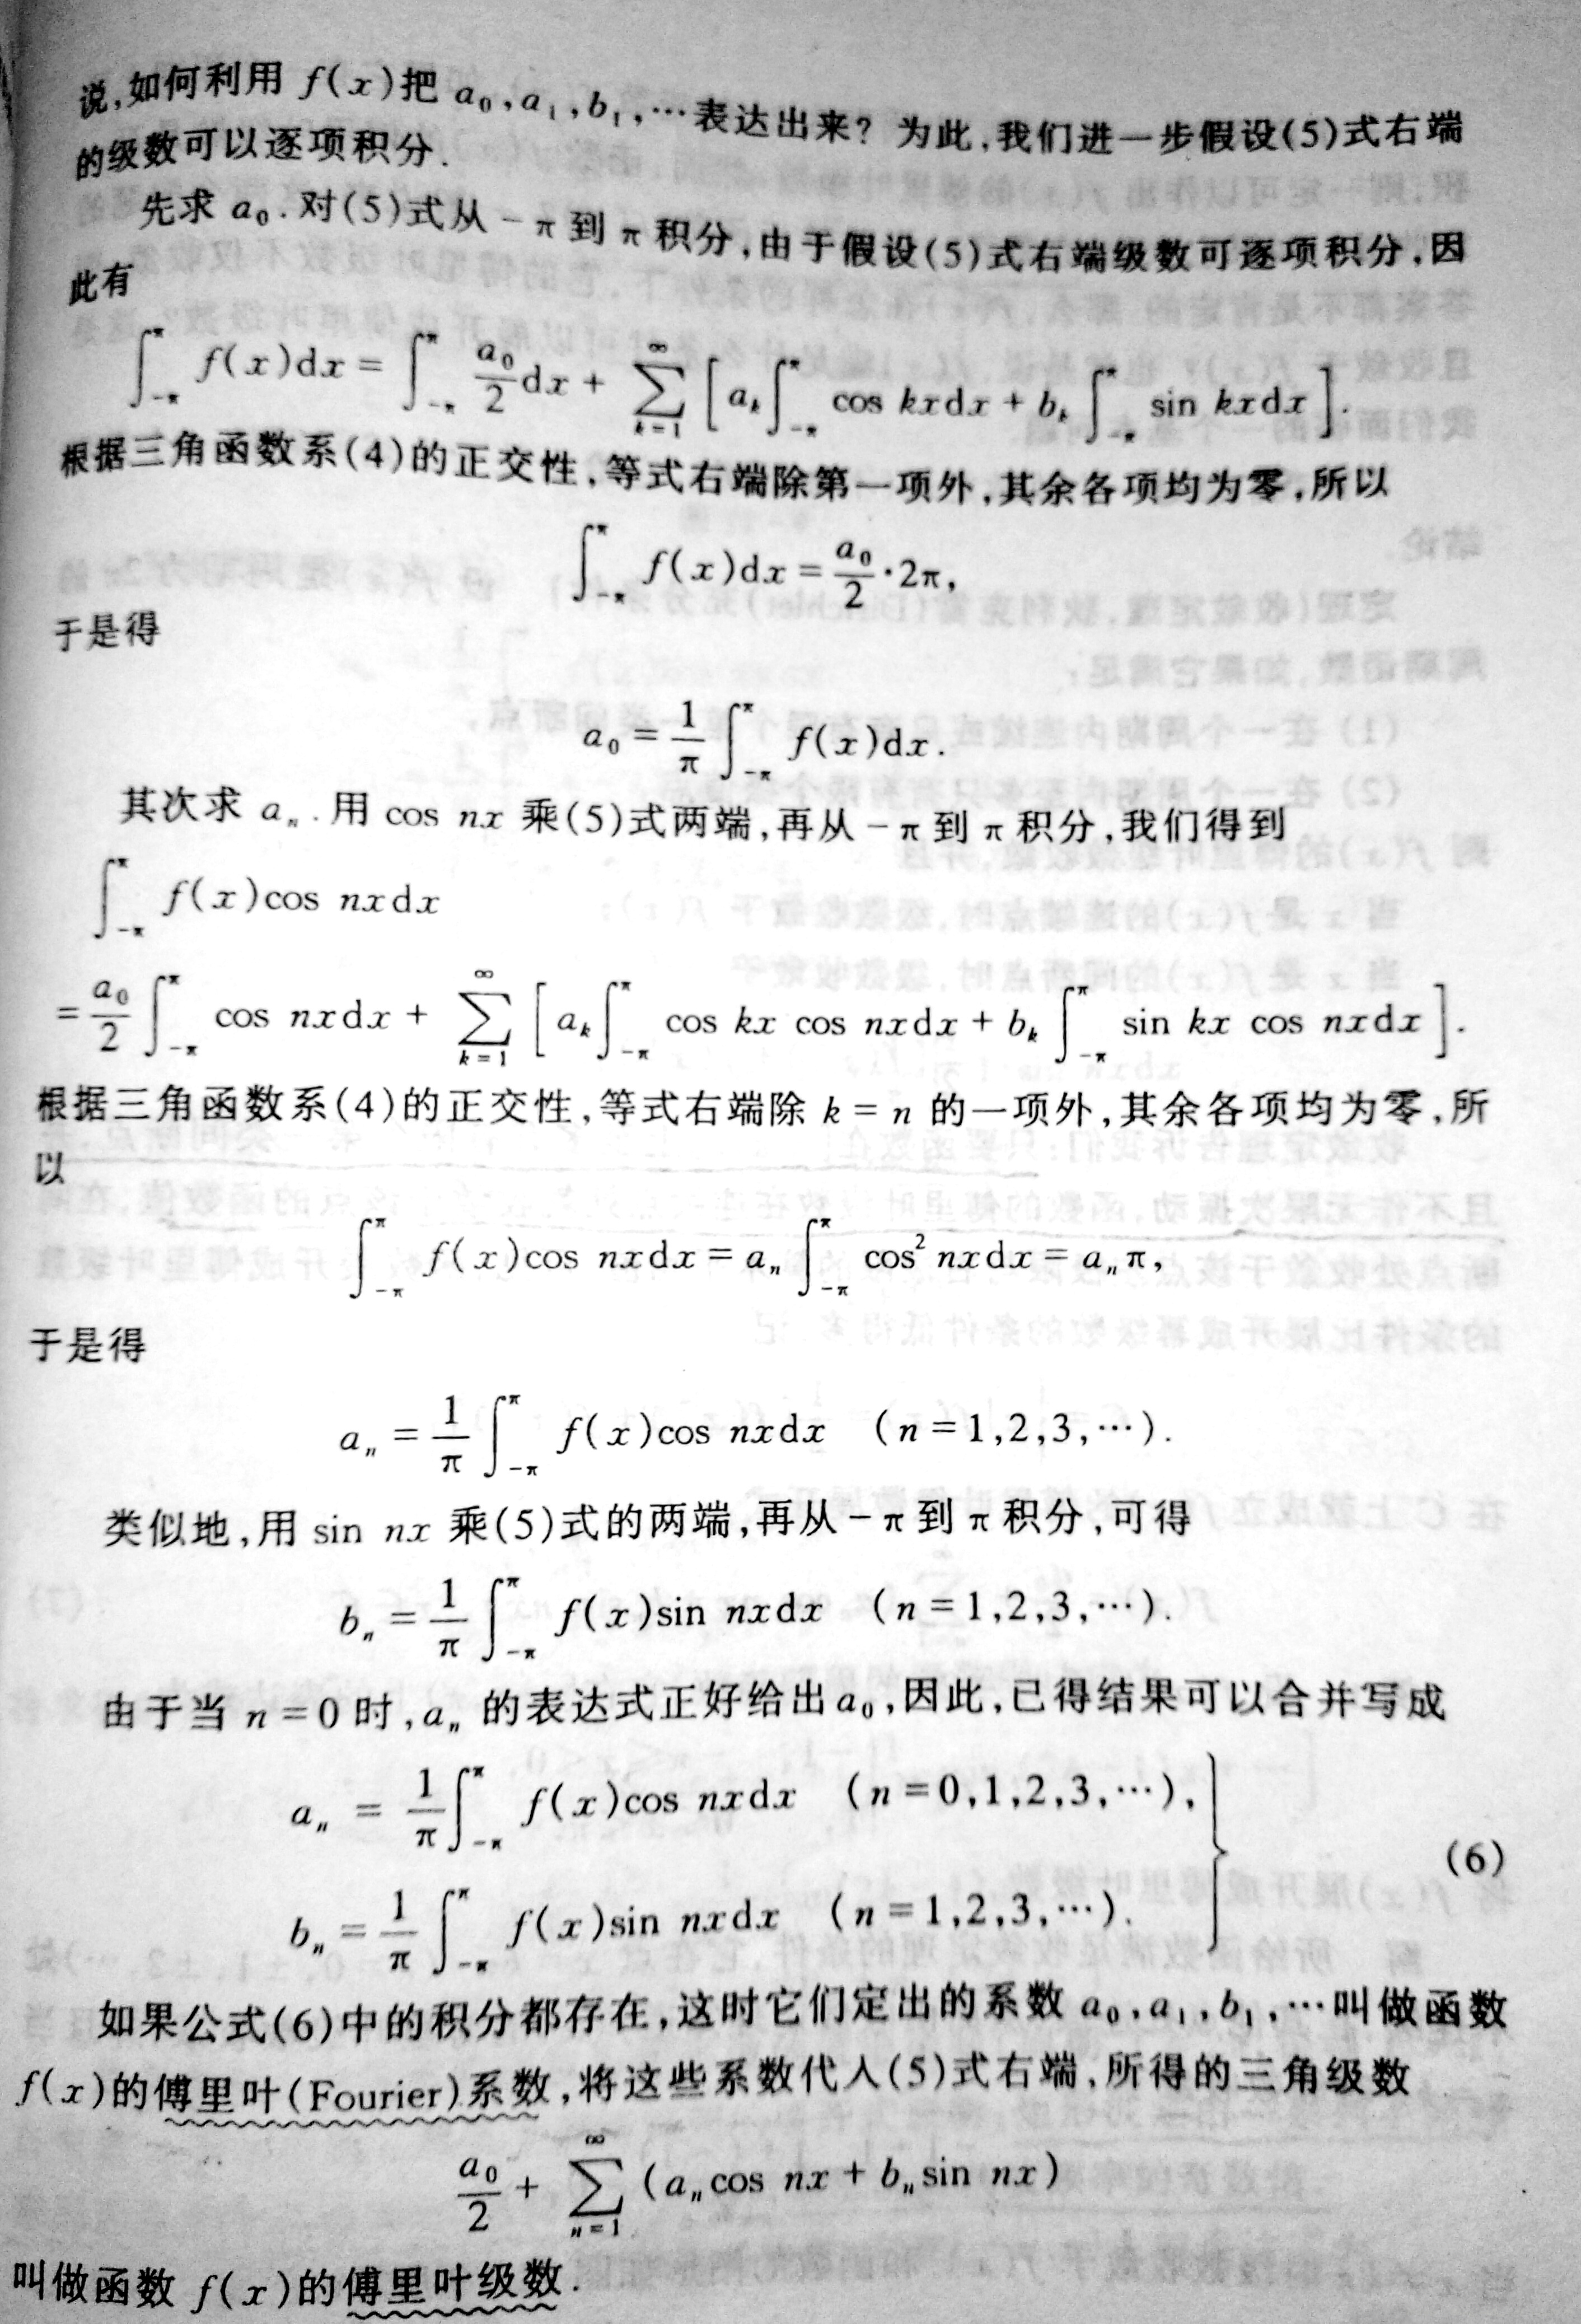 说,如何利用 f(x)把 a₀,a₁,b₁,…表达出来? 为此,我们进一步假设(5)式右端
的级数可以逐项积分.
先求 a₀.对(5)式从 -π 到 π 积分,由于假设(5)式右端级数可逐项积分,因
此有
∫_{-π}^{π} f(x)dx = ∫_{-π}^{π} a₀/2 dx + ∑_{k=1}^{∞} [a_k∫_{-π}^{π} cos kxdx + b_k∫_{-π}^{π} sin kxdx].
根据三角函数系(4)的正交性,等式右端除第一项外,其余各项均为零,所以
∫_{-π}^{π} f(x)dx = a₀/2·2π,
于是得
a₀ = 1/π ∫_{-π}^{π} f(x)dx.
其次求 aₙ.用 cos nx 乘(5)式两端,再从 -π 到 π 积分,我们得到
∫_{-π}^{π} f(x)cos nxdx
= a₀/2 ∫_{-π}^{π} cos nxdx + ∑_{k=1}^{∞} [a_k∫_{-π}^{π} cos kx cos nxdx + b_k∫_{-π}^{π} sin kx cos nxdx].
根据三角函数系(4)的正交性,等式右端除 k = n 的一项外,其余各项均为零,所
以
∫_{-π}^{π} f(x)cos nxdx = aₙ∫_{-π}^{π} cos² nxdx = aₙπ,
于是得
aₙ = 1/π ∫_{-π}^{π} f(x)cos nxdx (n = 1,2,3,…).
类似地,用 sin nx 乘(5)式的两端,再从 -π 到 π 积分,可得
bₙ = 1/π ∫_{-π}^{π} f(x)sin nxdx (n = 1,2,3,…).
由于当 n = 0 时,aₙ 的表达式正好给出 a₀,因此,已得结果可以合并写成
aₙ = 1/π ∫_{-π}^{π} f(x)cos nxdx (n = 0,1,2,3,…),
bₙ = 1/π ∫_{-π}^{π} f(x)sin nxdx (n = 1,2,3,…).
} (6)
如果公式(6)中的积分都存在,这时它们定出的系数 a₀,a₁,b₁,…叫做函数
f(x)的傅里叶(Fourier)系数,将这些系数代入(5)式右端,所得的三角级数
a₀/2 + ∑_{n=1}^{∞} (aₙcos nx + bₙsin nx)
叫做函数 f(x)的傅里叶级数.